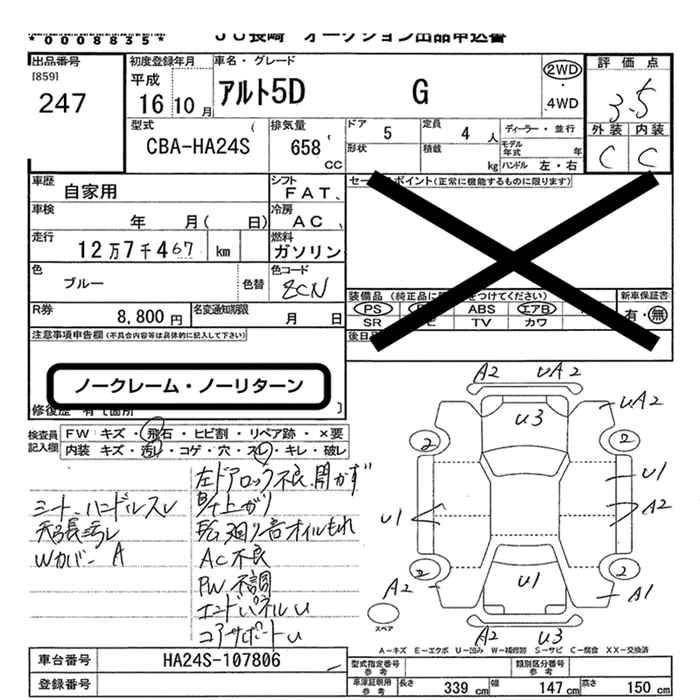 *0008835*
JU長崎 オークション出品申込書
出品番号
[859]
247
初度登録年月
平成
16 10月
車名・グレード
アルト5D G
2WD
・
4WD
評価点
3.5
外装 内装
C C
型式
CBA-HA24S
排気量
658
cc
ドア 5
定員 4 人
ディーラー・並行
形状
積載 kg
モデル年式 年
ハンドル 左・右
車歴
自家用
シフト
FAT、
車検
年 月( 日)
冷房
AC、
走行
12万7千467 km
燃料
ガソリン
色
ブルー
色替
色コード
ZCN
R券
8,800円
名変通知期限
月 日
セールスポイント(正常に機能するものに限ります)
新車保証書
有・無
PS
ABS エアB
SR TV カワ
注意事項申告欄(不具合内容等は具体的に記入して下さい)
ノークレーム・ノーリターン
検査員記入欄
FW キズ・飛石・ヒビ割・リペア跡・×要
内装 キズ・汚レ・コゲ・穴・スレ・キレ・破レ
左ドアロック不良、開かず
シート、ハンドルスレ
天張汚レ
Wカバー A
下廻り音オイルもれ
AC不良
PW不調
エンドパネルU
コアサポートU
A2 UA2
U3
UA2
2 2
U1
U1
A2
2 2
U1
A2
A1
A2 U3
スペア
A-キズ E-エクボ U-凹み W-補修跡 S-サビ C-腐食 XX-交換済
車台番号
HA24S-107806
登録番号
型式指定番号
参考
類別区分番号
参考
車庫証明用
参考
長さ 339 cm
幅 147 cm
高さ 150 cm